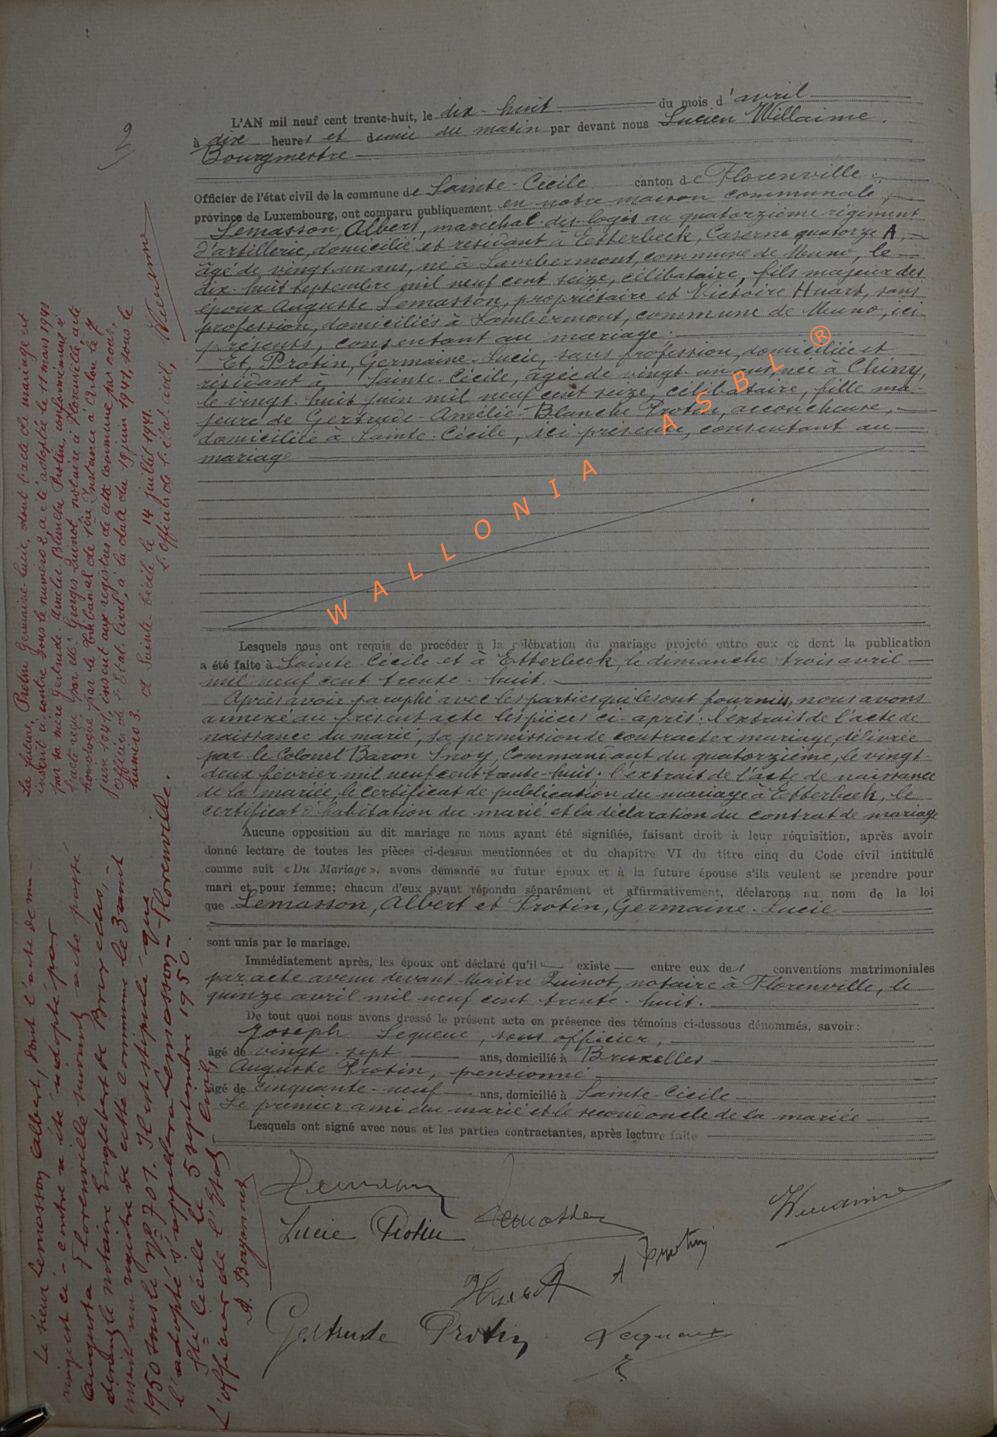 2
L'AN mil neuf cent trente-huit, le dix-huit du mois d'avril
à dix heures et demie du matin par devant nous Lucien Willaime.
Bourgmestre
Officier de l'état civil de la commune de Sainte-Cécile canton de Florenville
province de Luxembourg, ont comparu publiquement en notre maison communale,
Lemasson, Albert, maréchal-des-logis au quatorzième régiment
d'artillerie, domicilié et résidant à Etterbeek, Caserne quatorze A,
âgé de vingt un ans, né à Lambermont, commune de Muno, le
dix-huit septembre mil neuf cent seize, célibataire, fils majeur des
époux Auguste Lemasson, propriétaire et Victoire Huart, sans
profession, domiciliés à Lambermont, commune de Muno, ici
présents, consentant au mariage.
Et, Protin, Germaine-Lucie, sans profession, domiciliée et
résidant à Sainte-Cécile, âgée de vingt un ans, née à Chiny,
le vingt-huit juin mil neuf cent seize, célibataire, fille ma-
jeure de Gertrude-Amélie-Blanche Protin, accoucheuse,
domiciliée à Sainte-Cécile, ici présente, consentant au
mariage
WALLONIA ASBL ®
Lesquels nous ont requis de procéder à la célébration du mariage projeté entre eux et dont la publication
a été faite à Sainte Cécile et à Etterbeek, le dimanche trois avril
mil neuf cent trente-huit.
Après avoir paraphé avec les parties qui les ont fournies, nous avons
annexé au présent acte les pièces ci-après: l'extrait de l'acte de
naissance du marié, sa permission de contracter mariage, délivrée
par le Colonel Baron Snoy, Commandant du quatorzième, le vingt-
deux février mil neuf cent trente-huit. l'extrait de l'acte de naissance
de la mariée, le certificat de publication du mariage à Etterbeek, le
certificat d'habitation du marié et la déclaration du contrat de mariage
Aucune opposition au dit mariage ne nous ayant été signifiée, faisant droit à leur réquisition, après avoir
donné lecture de toutes les pièces ci-dessus mentionnées et du chapitre VI du titre cinq du Code civil intitulé
comme suit « Du Mariage », avons demandé au futur époux et à la future épouse s'ils veulent se prendre pour
mari et pour femme; chacun d'eux ayant répondu séparément et affirmativement, déclarons au nom de la loi
que Lemasson, Albert et Protin, Germaine-Lucie
sont unis par le mariage.
Immédiatement après, les époux ont déclaré qu'il existe entre eux des conventions matrimoniales
par acte avenu devant Maître Quinot, notaire à Florenville, le
quinze avril mil neuf cent trente-huit.
De tout quoi nous avons dressé le présent acte en présence des témoins ci-dessous dénommés, savoir:
Joseph Lequeux, sous officier,
âgé de vingt-sept ans, domicilié à Bruxelles
Auguste Protin, pensionné
âgé de cinquante-neuf ans, domicilié à Sainte-Cécile
Le premier ami du marié et le second oncle de la mariée
Lesquels ont signé avec nous et les parties contractantes, après lecture faite
Lucie Protin
A Protin
Huart
Gertrude Protin
Lequeux
La future, Protin Germaine-Lucie, dont l'acte de mariage est
inscrit ci-contre sous le numéro 2, a été adoptée le 11 mars 1941
par sa mère Gertrude-Amélie-Blanche Protin, conformément à
l'acte reçu par Me Georges Quinot, notaire à Florenville, acte
homologué par le tribunal de 1ère Instance à Arlon le 7
juin 1941, inscrit aux registres de cette commune par nous,
Officier de l'Etat-Civil, à la date du 19 juin 1941, sous le
numéro 3.
à Sainte-Cécile le 14 juillet 1941.
L'Officier de l'état civil,
Le sieur Lemasson Albert, dont l'acte de ma-
riage est ci-contre a été adopté par
Augusta Florenville suivant acte passé
devant le notaire Englebert de Bruxelles,
inscrit au registre de cette commune le 3 août
1950 sous le No 701. Il est stipulé que
l'adopté s'appellera Lemasson-Florenville.
Ste Cécile le 5 septembre 1950.
L'officier de l'Etat Civil,